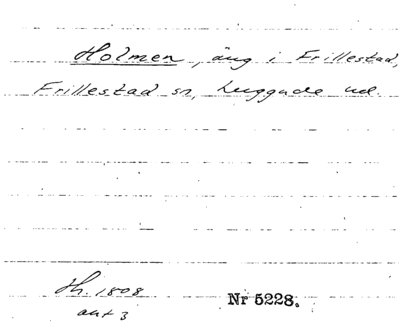 Holmen, äng i Frillestad,
Frillestad sn, Luggude hd.
Hh. 1808
akt 3
Nr 5228.